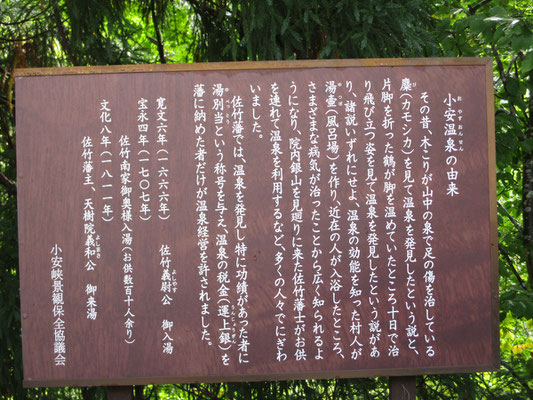 小安温泉の由来
おやすおんせん
その昔、木こりが山中の泉で足の傷を治している
麋(カモシカ)を見て温泉を発見したという説と、
片脚を折った鶴が脚を温めていたところ十日で治
り飛び立つ姿を見て温泉を発見したという説があ
り、諸説いずれにせよ、温泉の効能を知った村人が
湯壷(風呂場)を作り、近在の人が入浴したところ、
さまざまな病気が治ったことから広く知られるよ
うになり、院内銀山を見廻りに来た佐竹藩士がお供
を連れて温泉を利用するなど、多くの人々でにぎわ
いました。
佐竹藩では、温泉を発見し特に功績があった者に
湯別当という称号を与え、温泉の税金(運上銀)を
藩に納めた者だけが温泉経営を許されました。
寛文六年(一六六六年)　佐竹義尉公　御入湯
宝永四年(一七〇七年)
佐竹内家御奥様入湯(お供数百十人余り)
文化八年(一八一一年)
佐竹藩主、天樹院義和公　御来湯
小安峡景観保全協議会